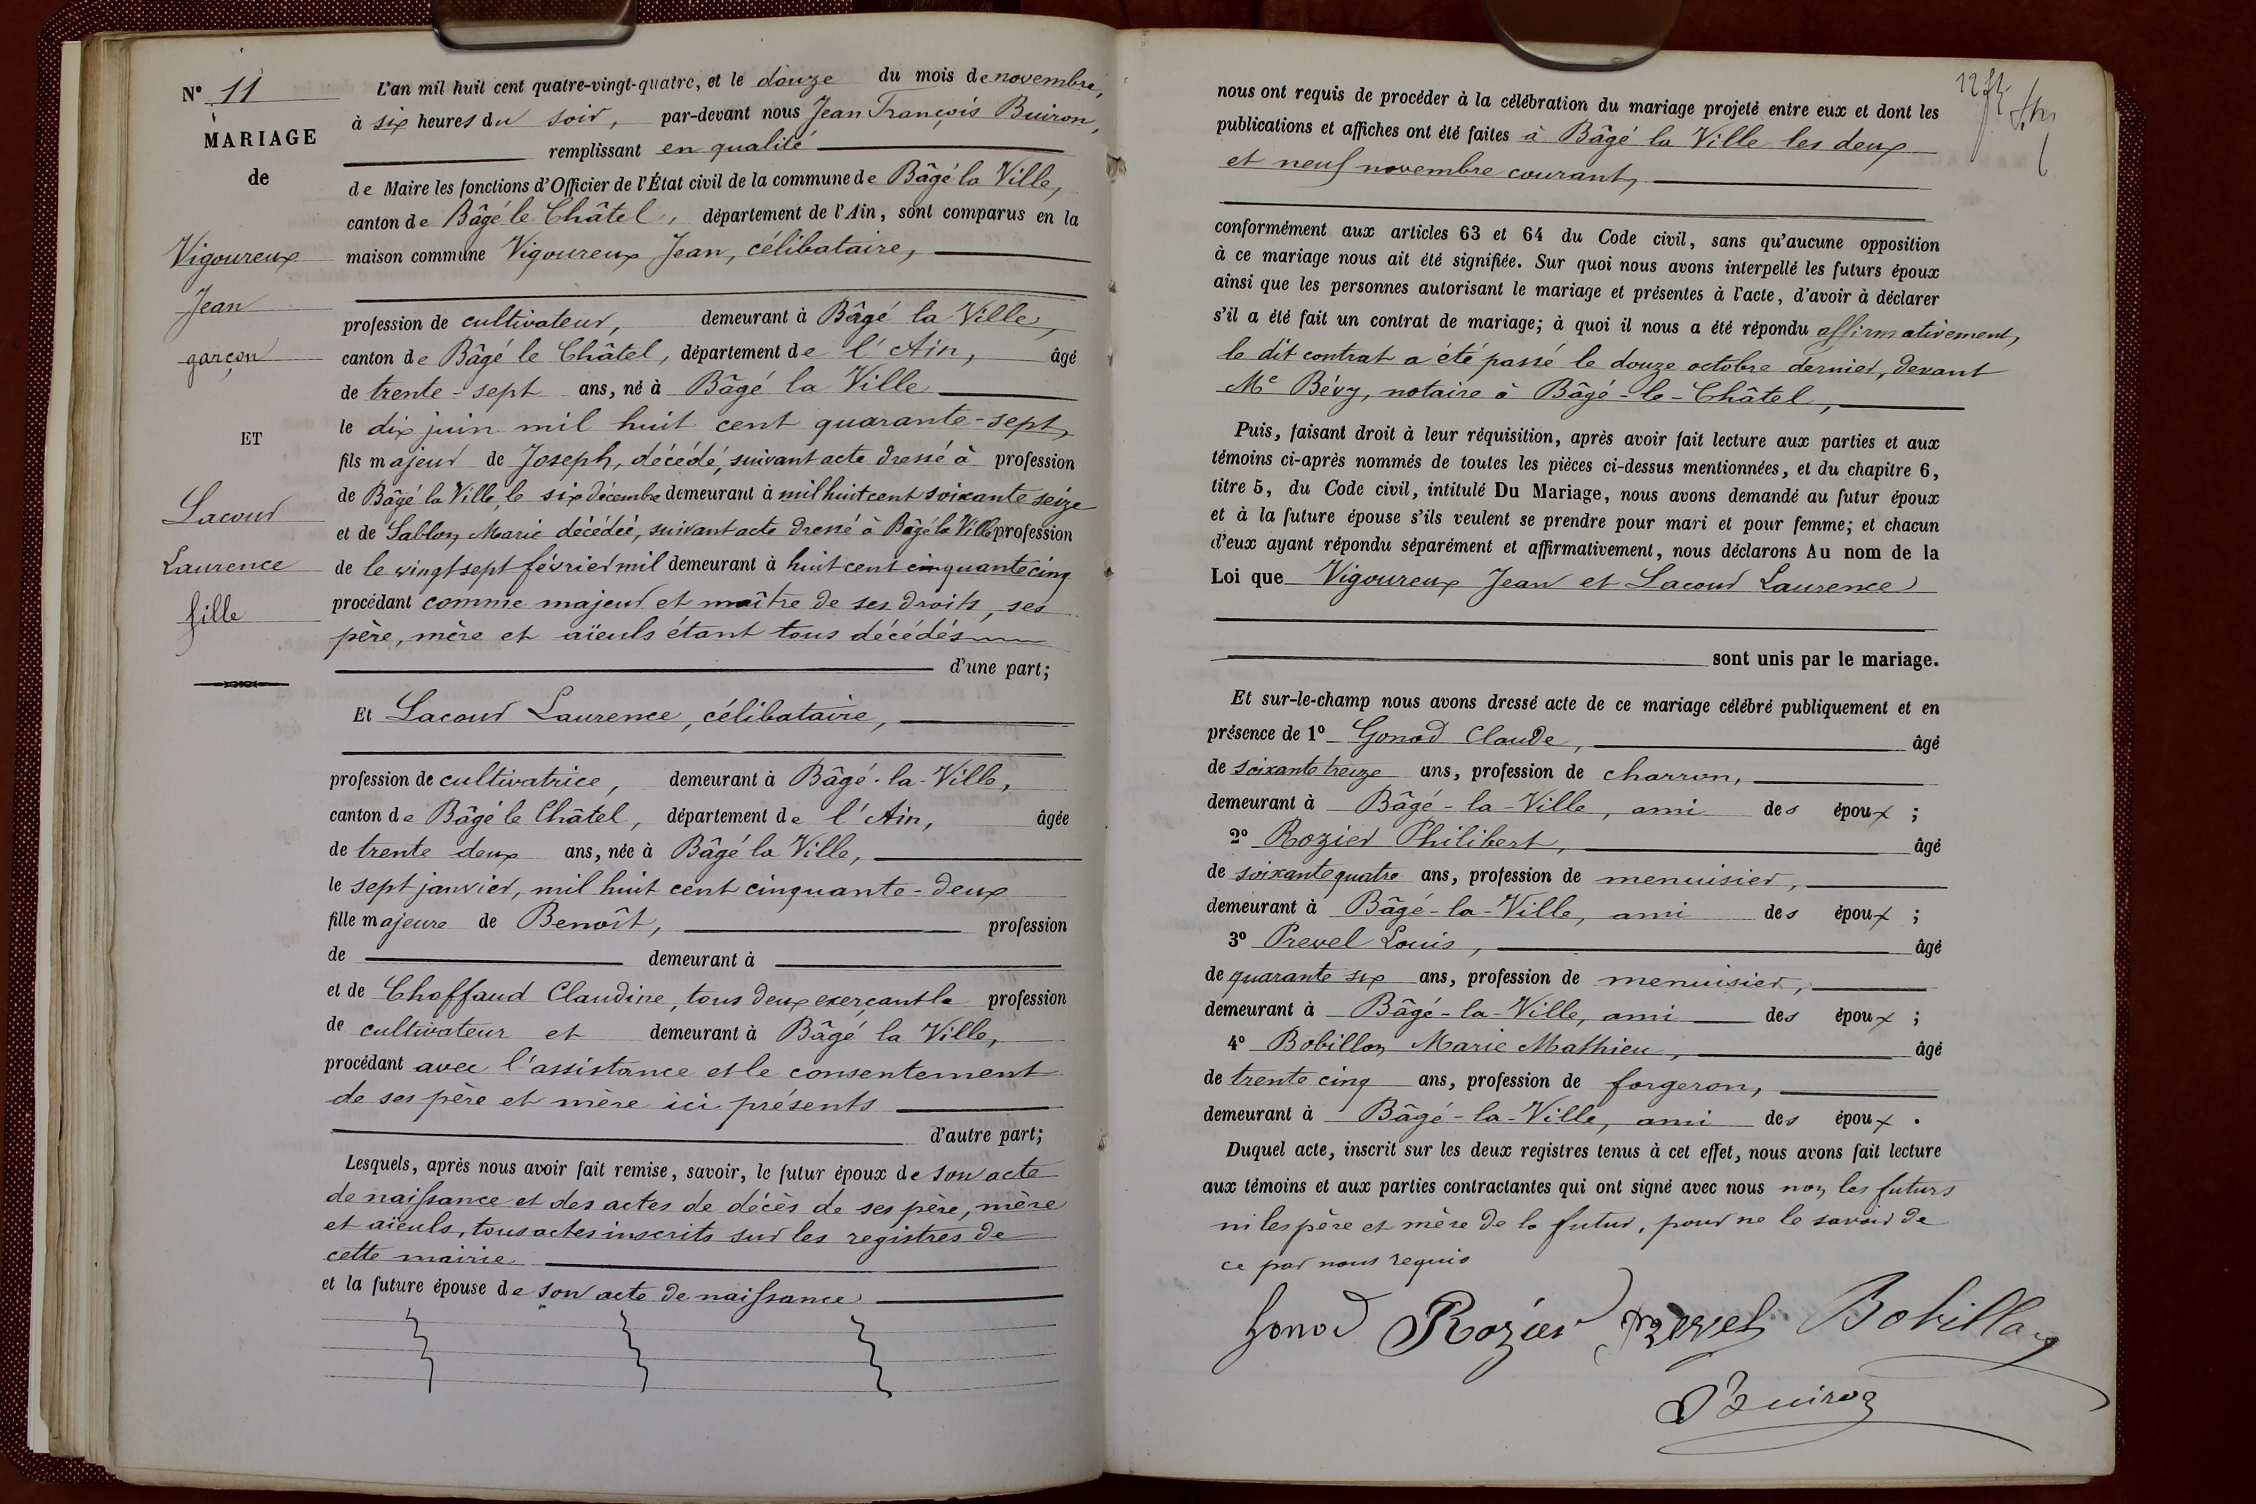 N° 11
MARIAGE
de
Vigoureux
Jean
garçon
ET
Lacour
Laurence
fille
L'an mil huit cent quatre-vingt-quatre, et le douze du mois de novembre,
à six heures du soir, par-devant nous Jean François Buiron,
remplissant en qualité
de Maire les fonctions d'Officier de l'État civil de la commune de Bâgé la Ville,
canton de Bâgé le Châtel, département de l'Ain, sont comparus en la
maison commune Vigoureux Jean, célibataire,
profession de cultivateur, demeurant à Bâgé la Ville,
canton de Bâgé le Châtel, département de l'Ain, âgé
de trente-sept ans, né à Bâgé la Ville
le dix juin mil huit cent quarante-sept,
fils majeur de Joseph, décédé, suivant acte dressé à profession
de Bâgé la Ville, le six décembre demeurant à mil huit cent soixante seize
et de Sablon Marie décédée, suivant acte dressé à Bâgé la Ville profession
de le vingt sept février mil demeurant à huit cent cinquante cinq
procédant comme majeur et maître de ses droits, ses
père, mère et aïeuls étant tous décédés
d'une part;
Et Lacour Laurence, célibataire,
profession de cultivatrice, demeurant à Bâgé-la-Ville,
canton de Bâgé le Châtel, département de l'Ain, âgée
de trente deux ans, née à Bâgé la Ville,
le sept janvier, mil huit cent cinquante-deux
fille majeure de Benoît, profession
de demeurant à
et de Choffaud Claudine, tous deux exerçant la profession
de cultivateur et demeurant à Bâgé la Ville,
procédant avec l'assistance et le consentement
de ses père et mère ici présents
d'autre part;
Lesquels, après nous avoir fait remise, savoir, le futur époux de son acte
de naissance et des actes de décès de ses père, mère
et aïeuls, tous actes inscrits sur les registres de
cette mairie
et la future épouse de son acte de naissance
nous ont requis de procéder à la célébration du mariage projeté entre eux et dont les
publications et affiches ont été faites à Bâgé la Ville les deux
et neuf novembre courant,
conformément aux articles 63 et 64 du Code civil, sans qu'aucune opposition
à ce mariage nous ait été signifiée. Sur quoi nous avons interpellé les futurs époux
ainsi que les personnes autorisant le mariage et présentes à l'acte, d'avoir à déclarer
s'il a été fait un contrat de mariage; à quoi il nous a été répondu affirmativement,
le dit contrat a été passé le douze octobre dernier, devant
Me Bévy, notaire à Bâgé-le-Châtel,
Puis, faisant droit à leur réquisition, après avoir fait lecture aux parties et aux
témoins ci-après nommés de toutes les pièces ci-dessus mentionnées, et du chapitre 6,
titre 5, du Code civil, intitulé Du Mariage, nous avons demandé au futur époux
et à la future épouse s'ils veulent se prendre pour mari et pour femme; et chacun
d'eux ayant répondu séparément et affirmativement, nous déclarons Au nom de la
Loi que Vigoureux Jean et Lacour Laurence
sont unis par le mariage.
Et sur-le-champ nous avons dressé acte de ce mariage célébré publiquement et en
présence de 1° Gonod Claude, âgé
de soixante treize ans, profession de charron,
demeurant à Bâgé-la-Ville, ami des époux ;
2° Rozier Philibert, âgé
de soixante quatre ans, profession de menuisier,
demeurant à Bâgé-la-Ville, ami des époux ;
3° Prevel Louis, âgé
de quarante six ans, profession de menuisier,
demeurant à Bâgé-la-Ville, ami des époux ;
4° Bobillon Marie Mathieu, âgé
de trente cinq ans, profession de forgeron,
demeurant à Bâgé-la-Ville, ami des époux .
Duquel acte, inscrit sur les deux registres tenus à cet effet, nous avons fait lecture
aux témoins et aux parties contractantes qui ont signé avec nous non les futurs
ni les père et mère de la futur, pour ne le savoir de
ce par nous requis
Gonod Rozier Prevel Bobillon
Buiron